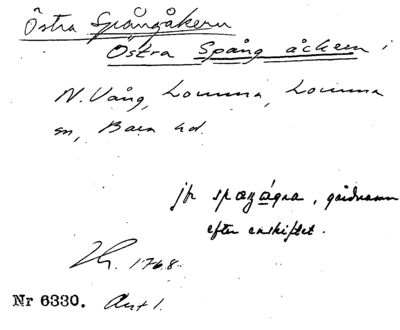 Östra Spångåkern
Östra Spång åckern i
N. Vång, Lomma, Lomma
sn, Bara hd.
jfr spaɳågra, gårdnamn
efter enskiftet.
1768.
Nr 6330. Akt 1.